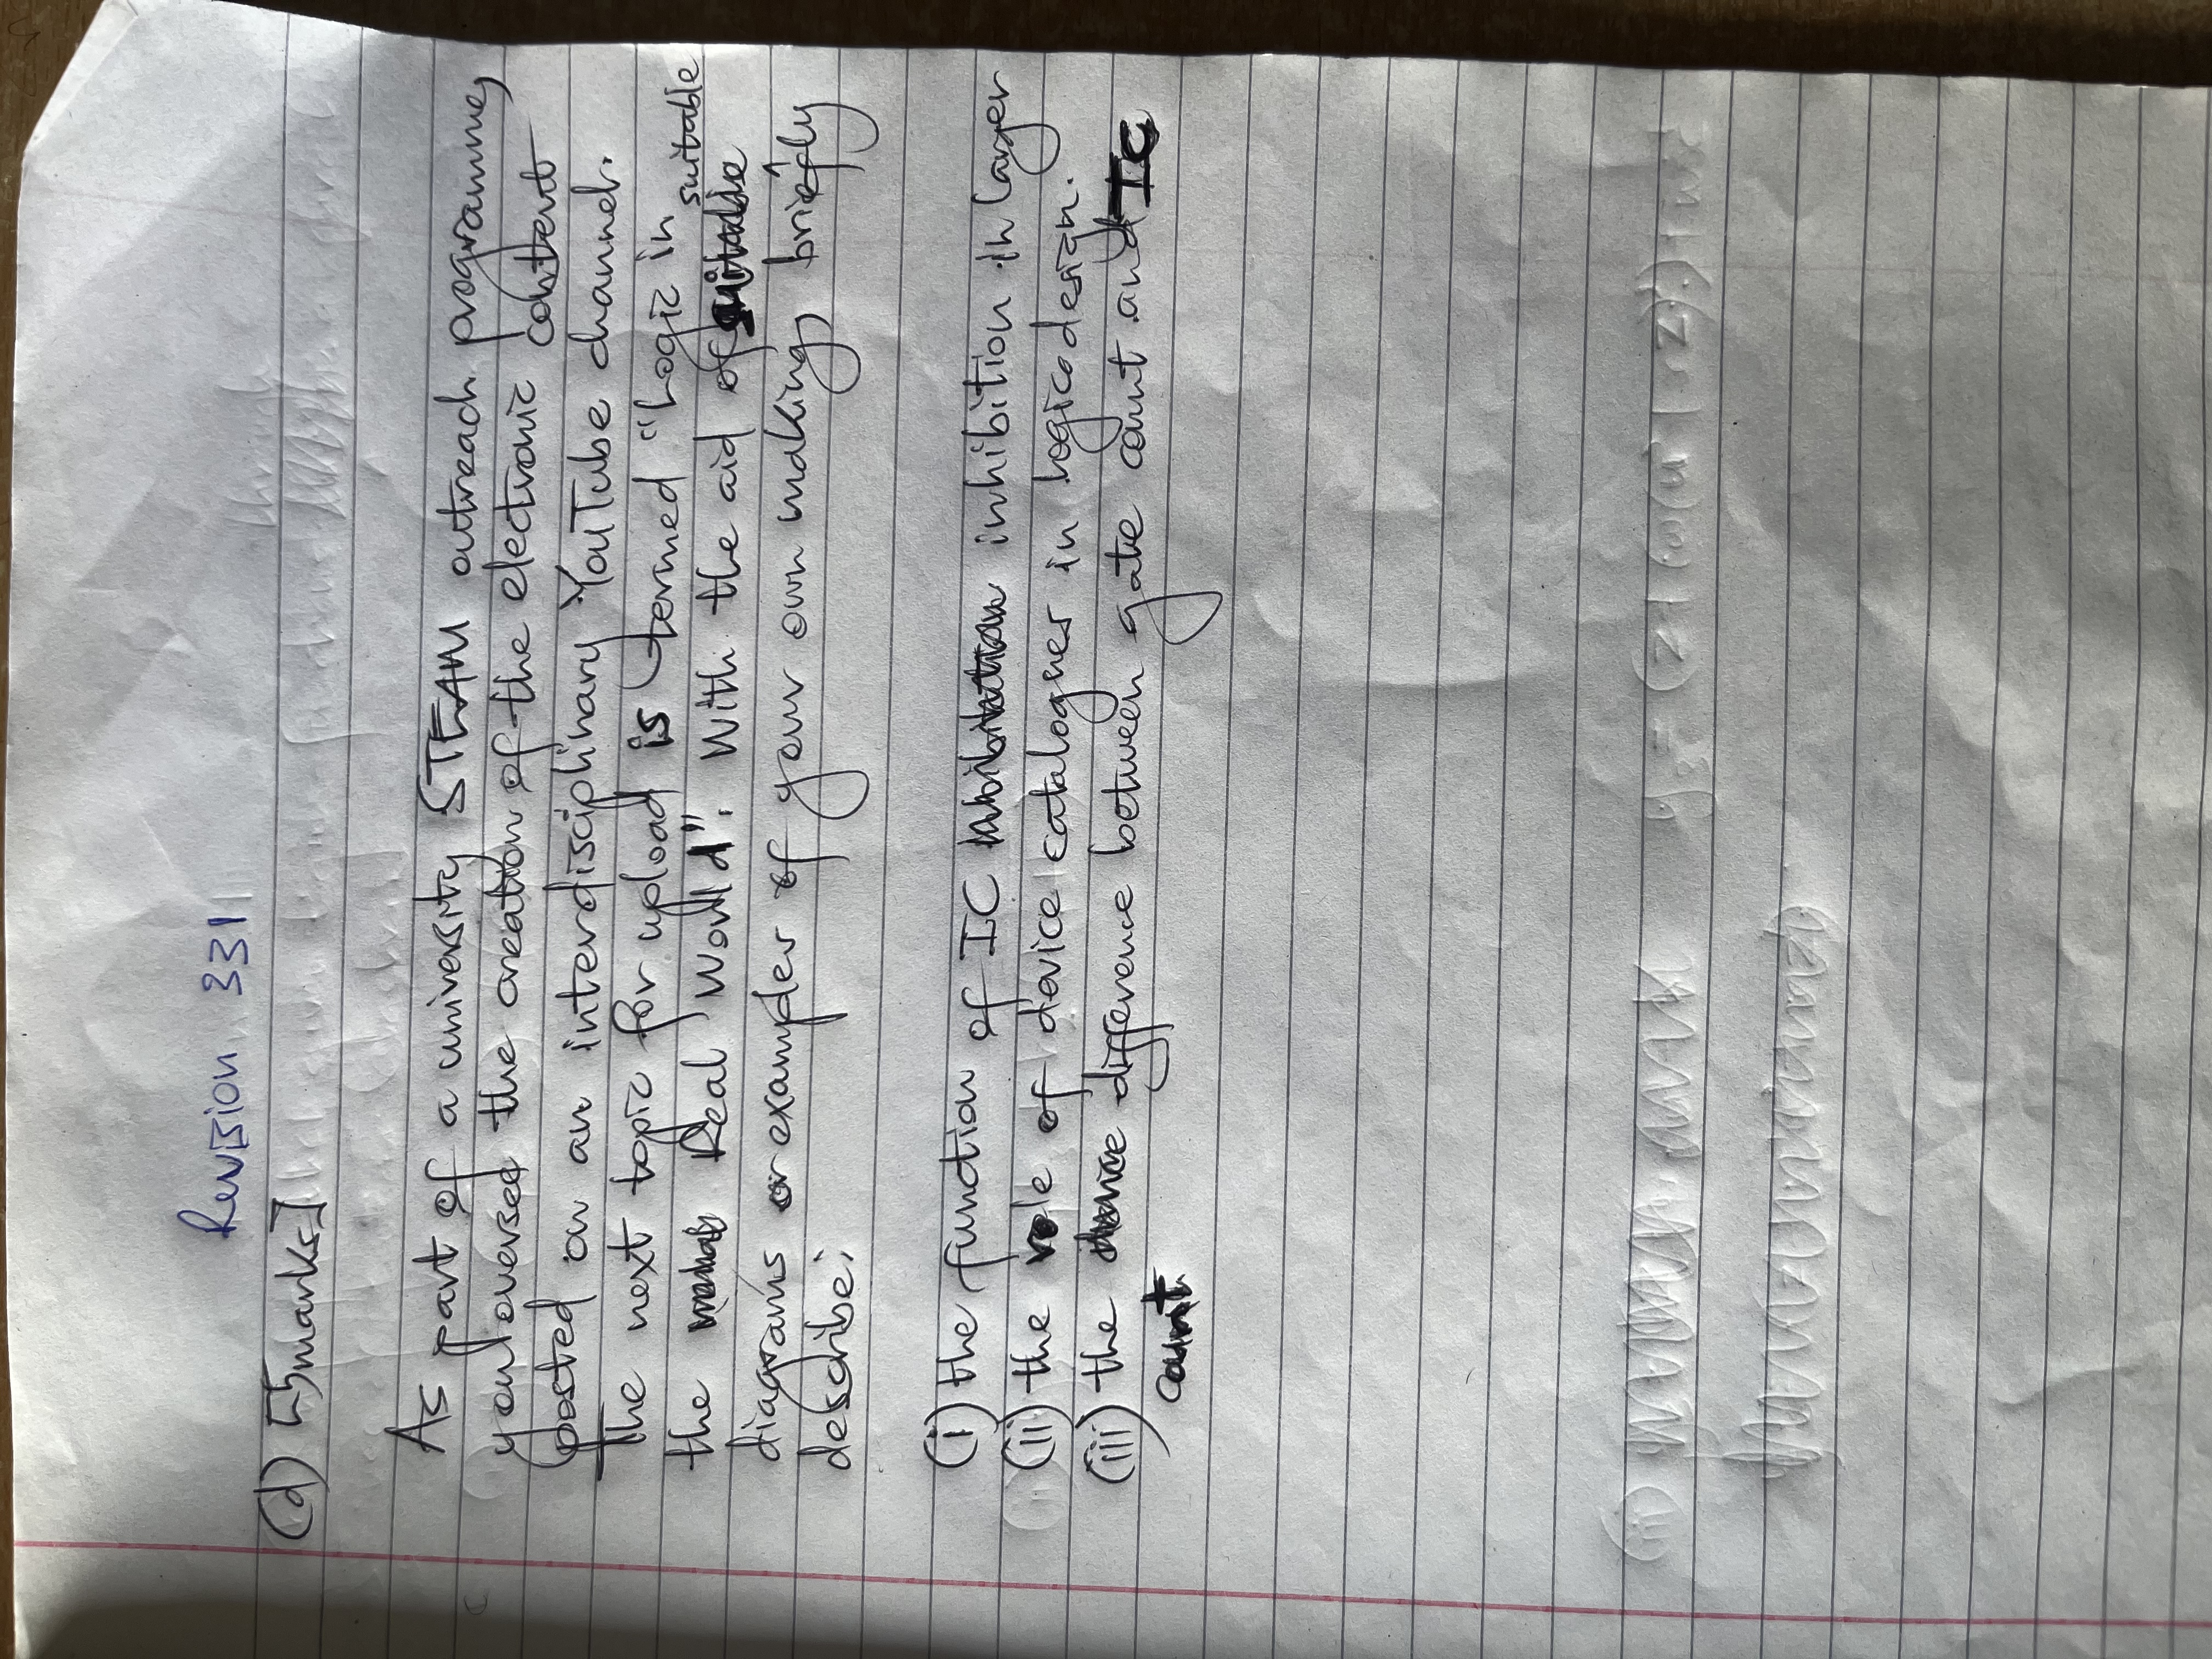 Revision 331
(d) [5marks]
As part of a university STEAM outreach programme,
you oversee the creation of the electronic content
posted on an interdisciplinary YouTube channel.
The next topic for upload is termed "Logic in
the Real World". With the aid of suitable
diagrams or examples of your own making briefly
describe:
(i) the function of IC inhibition in larger
(ii) the role of device catalogues in logic design.
(iii) the difference between gate count and IC
count